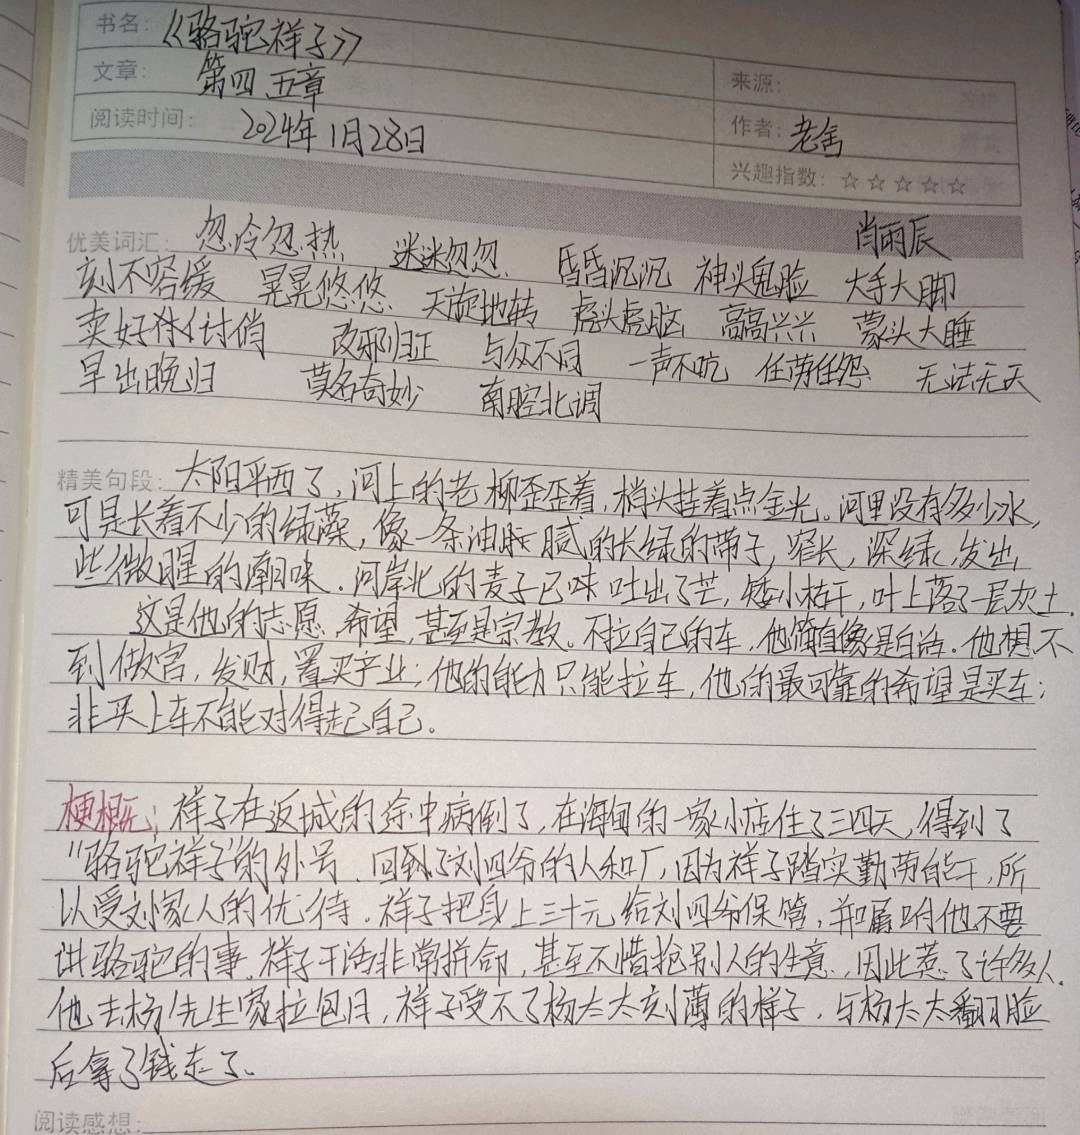 书名：《骆驼祥子》
文章：第四、五章
来源：
阅读时间：2024年1月28日
作者：老舍
兴趣指数：☆☆☆☆☆
肖雨辰
优美词汇：忽冷忽热 迷迷忽忽 昏昏沉沉 神头鬼脸 大手大脚
刻不容缓 晃晃悠悠 天旋地转 虎头虎脑 高高兴兴 蒙头大睡
卖好讨俏 改邪归正 与众不同 一声不吭 任劳任怨 无法无天
早出晚归 莫名奇妙 南腔北调
精美句段：太阳平西了，河上的老柳歪歪着，梢头挂着点金光。河里没有多少水，
可是长着不少的绿藻，像一条油腻的长绿的带子，窄长，深绿，发出
些微腥的潮味。河岸北的麦子已吐出了芒，矮小枯干，叶上落了一层灰土。
这是他的志愿，希望，甚至是宗教。不拉自己的车，他简直像是白活。他想不
到做官，发财，置买产业；他的能力只能拉车，他的最可靠的希望是买车；
非买上车不能对得起自己。
梗概：祥子在返城的途中病倒了，在海甸的一家小店住了三四天，得到了
“骆驼祥子”的外号。回到了刘四爷的人和厂，因为祥子踏实勤劳能干，所
以受刘家人的优待。祥子把身上三十元给刘四爷保管，并嘱咐他不要
讲骆驼的事。祥子干活非常拼命，甚至不惜抢别人的生意，因此惹了许多人。
他去杨先生家拉包月，祥子受不了杨太太刻薄的样子，与杨太太翻脸
后拿了钱走了。
阅读感想：